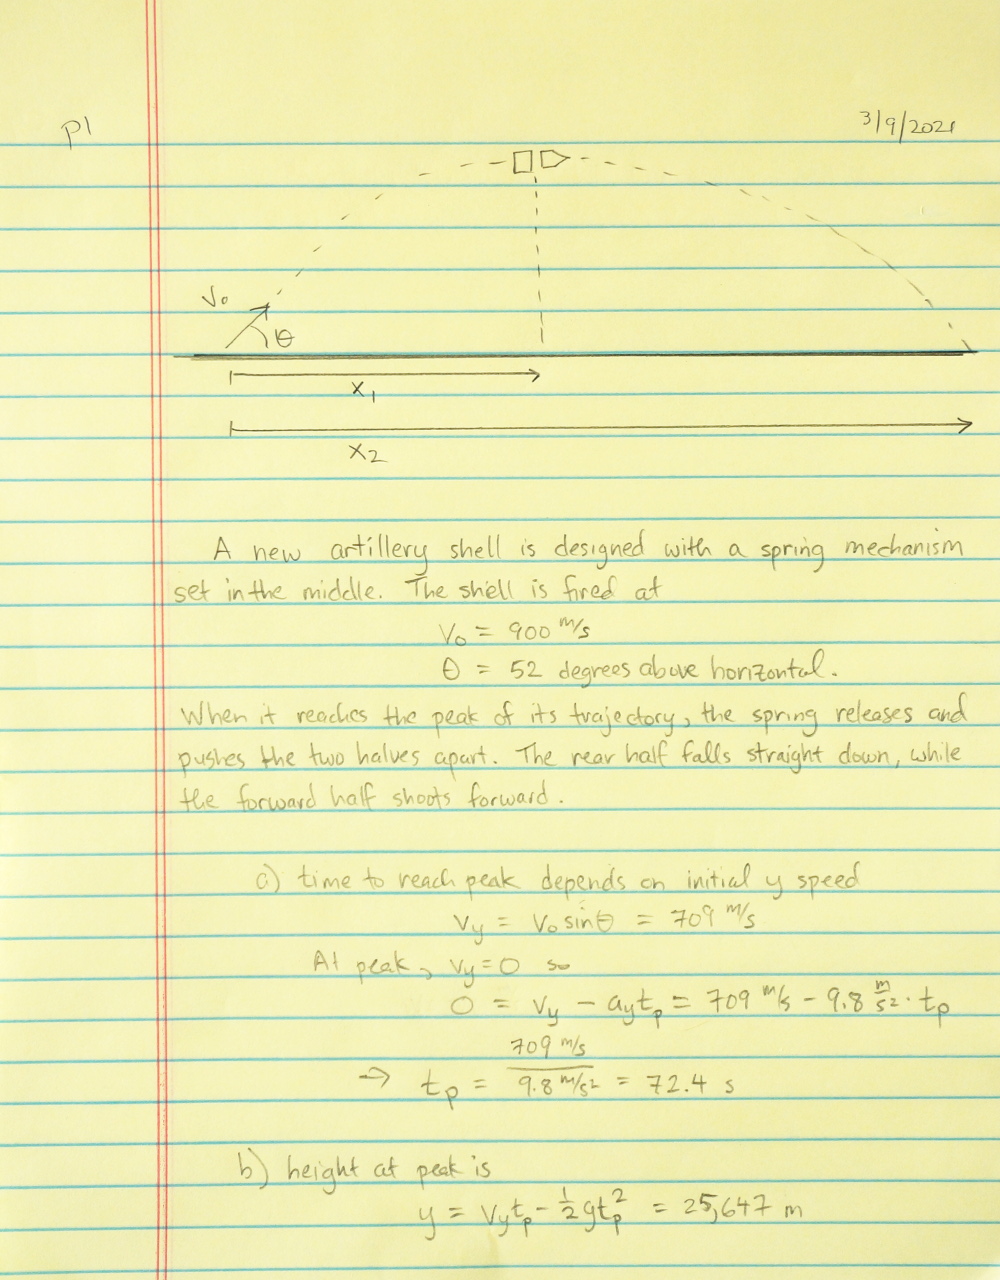 P1
3/9/2021
V₀
θ
x₁
x₂
A new artillery shell is designed with a spring mechanism
set in the middle. The shell is fired at
V₀ = 900 m/s
θ = 52 degrees above horizontal.
When it reaches the peak of its trajectory, the spring releases and
pushes the two halves apart. The rear half falls straight down, while
the forward half shoots forward.
a) time to reach peak depends on initial y speed
Vy = V₀ sinθ = 709 m/s
At peak, Vy = 0 so
0 = Vy - ay tp = 709 m/s - 9.8 m/s² · tp
→ tp = 709 m/s / 9.8 m/s² = 72.4 s
b) height at peak is
y = Vy tp - ½ g tp² = 25,647 m